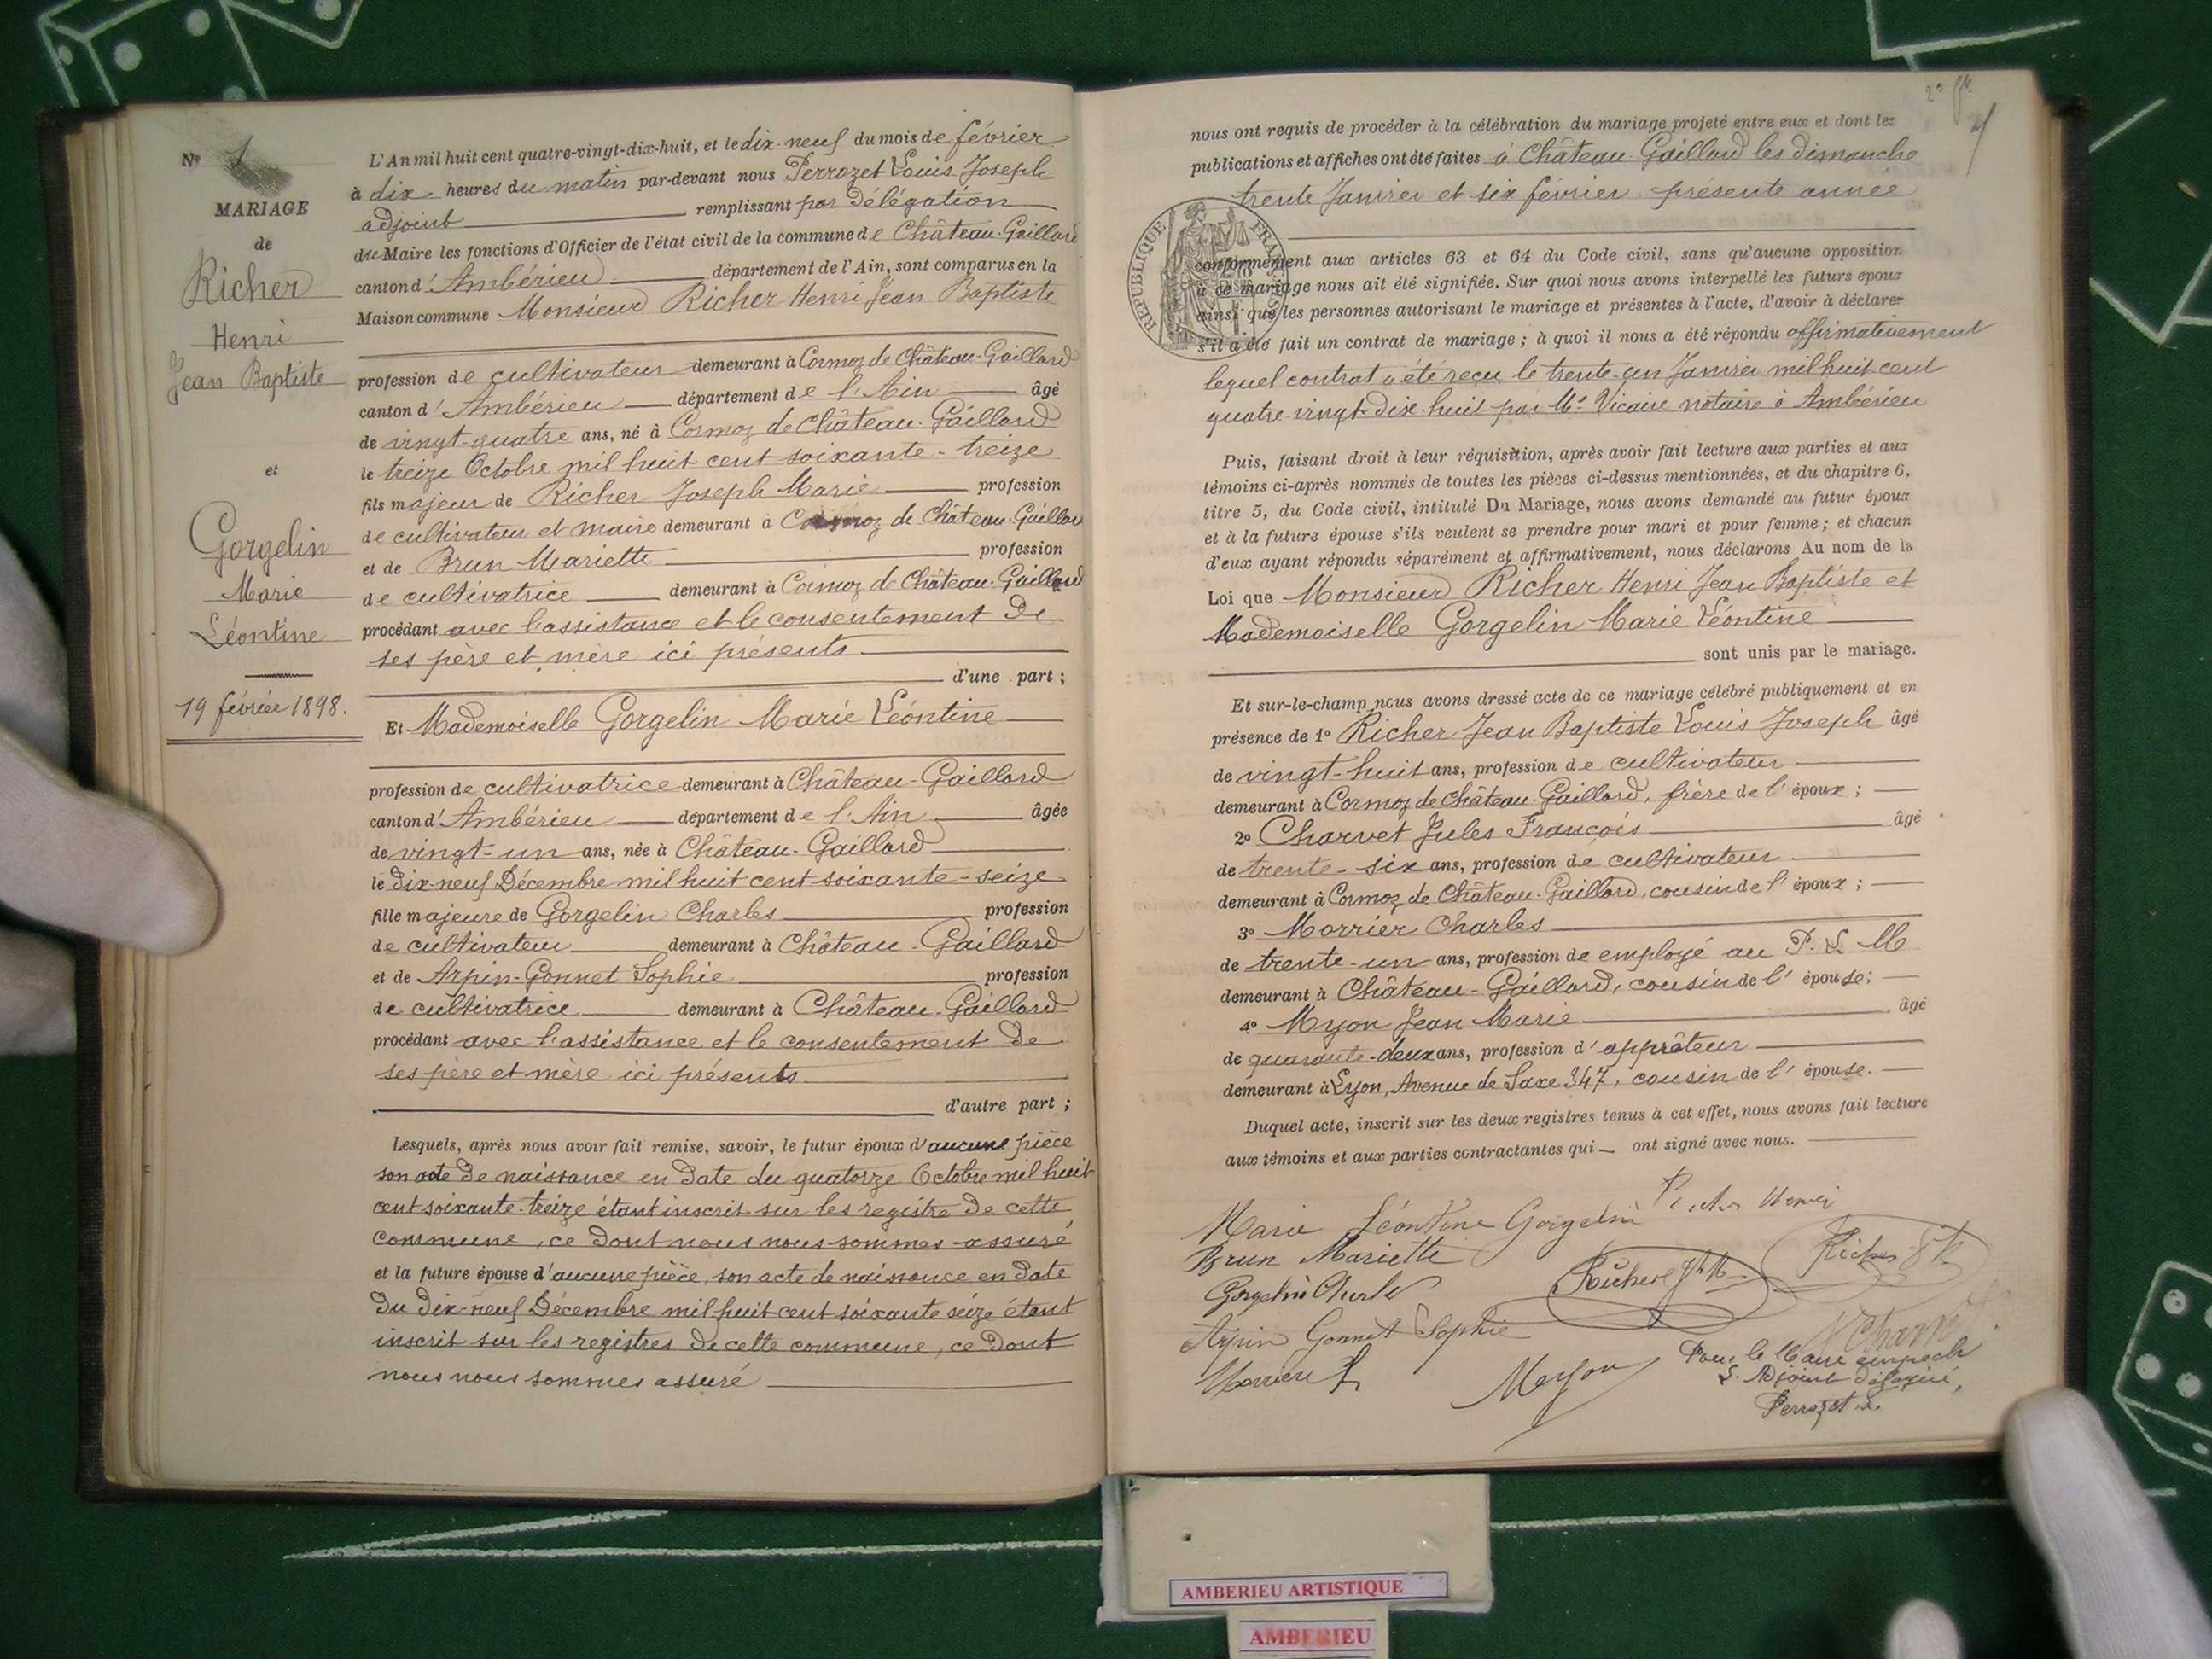 N° 1
MARIAGE
de
Richer
Henri
Jean Baptiste
et
Gorgelin
Marie
Léontine
19 février 1898.
L'An mil huit cent quatre-vingt-dix-huit, et le dix-neuf du mois de février
à dix heures du matin par-devant nous Perrozet Louis Joseph
adjoint remplissant par délégation
du Maire les fonctions d'Officier de l'état civil de la commune de Château-Gaillard
canton d'Ambérieu département de l'Ain, sont comparus en la
Maison commune Monsieur Richer Henri Jean Baptiste
profession de cultivateur demeurant à Cormoz de Château-Gaillard
canton d'Ambérieu département de l'Ain âgé
de vingt-quatre ans, né à Cormoz de Château-Gaillard
le treize Octobre mil huit cent soixante-treize
fils majeur de Richer Joseph Marie profession
de cultivateur et maire demeurant à Cormoz de Château-Gaillard
et de Brun Mariette profession
de cultivatrice demeurant à Cormoz de Château-Gaillard
procédant avec l'assistance et le consentement de
ses père et mère ici présents
d'une part ;
Et Mademoiselle Gorgelin Marie Léontine
profession de cultivatrice demeurant à Château-Gaillard
canton d'Ambérieu département de l'Ain âgée
de vingt-un ans, née à Château-Gaillard
le dix-neuf Décembre mil huit cent soixante-seize
fille majeure de Gorgelin Charles profession
de cultivateur demeurant à Château-Gaillard
et de Arpin-Gonnet Sophie profession
de cultivatrice demeurant à Château-Gaillard
procédant avec l'assistance et le consentement de
ses père et mère ici présents
d'autre part ;
Lesquels, après nous avoir fait remise, savoir, le futur époux d'aucune pièce
son acte de naissance en date du quatorze Octobre mil huit
cent soixante-treize étant inscrit sur les registre de cette
commune, ce dont nous nous sommes assuré
et la future épouse d'aucune pièce, son acte de naissance en date
du dix-neuf Décembre mil huit cent soixante seize étant
inscrit sur les registres de cette commune, ce dont
nous nous sommes assuré
nous ont requis de procéder à la célébration du mariage projeté entre eux et dont les
publications et affiches ont été faites à Château-Gaillard les dimanche
trente Janvier et six février présente année
REPUBLIQUE FRANÇAISE
conformément aux articles 63 et 64 du Code civil, sans qu'aucune opposition
à ce mariage nous ait été signifiée. Sur quoi nous avons interpellé les futurs époux
ainsi que les personnes autorisant le mariage et présentes à l'acte, d'avoir à déclarer
s'il a été fait un contrat de mariage ; à quoi il nous a été répondu affirmativement
lequel contrat a été reçu le trente-un Janvier mil huit cent
quatre-vingt-dix-huit par Me Vicaire notaire à Ambérieu
Puis, faisant droit à leur réquisition, après avoir fait lecture aux parties et aux
témoins ci-après nommés de toutes les pièces ci-dessus mentionnées, et du chapitre 6,
titre 5, du Code civil, intitulé Du Mariage, nous avons demandé au futur époux
et à la future épouse s'ils veulent se prendre pour mari et pour femme ; et chacun
d'eux ayant répondu séparément et affirmativement, nous déclarons Au nom de la
Loi que Monsieur Richer Henri Jean Baptiste et
Mademoiselle Gorgelin Marie Léontine
sont unis par le mariage.
Et sur-le-champ nous avons dressé acte de ce mariage célébré publiquement et en
présence de 1° Richer Jean Baptiste Louis Joseph âgé
de vingt-huit ans, profession de cultivateur
demeurant à Cormoz de Château-Gaillard, frère de l'époux ;
2° Charvet Jules François âgé
de trente-six ans, profession de cultivateur
demeurant à Cormoz de Château-Gaillard, cousin de l'époux ;
3° Morrier Charles
de trente-un ans, profession de employé au P. L. M
demeurant à Château-Gaillard, cousin de l'épouse ;
4° Myon Jean Marie âgé
de quarante-deux ans, profession d'apprêteur
demeurant à Lyon, Avenue de Saxe 347, cousin de l'épouse.
Duquel acte, inscrit sur les deux registres tenus à cet effet, nous avons fait lecture
aux témoins et aux parties contractantes qui ont signé avec nous.
Marie Léontine Gorgelin Richer Henri
Brun Mariette
Gorgelin Charles Richer Jh M Richer
Arpin Gonnet Sophie Charvet
Morrier Myon
Pour le Maire empêché
L'Adjoint délégué,
Perrozet
AMBERIEU ARTISTIQUE
AMBERIEU